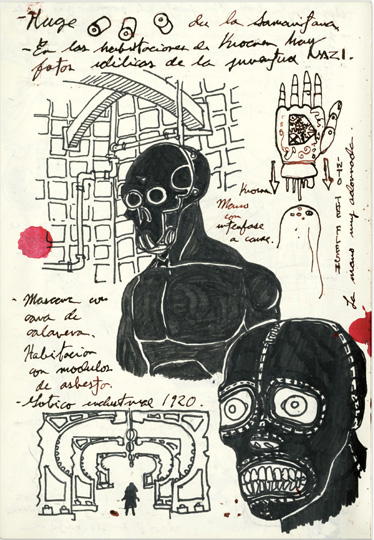 - Huge de la Samaritana
- En las habitaciones de Kroenen hay
fotos idílicas de la juventud NAZI.
Kroenen
Mano
con
interfase
a cause.
La mano muy adornada.
- Mascara con
cara de
calavera.
Habitacion
con modulos
de asbesto.
- Gotico industrial 1920.